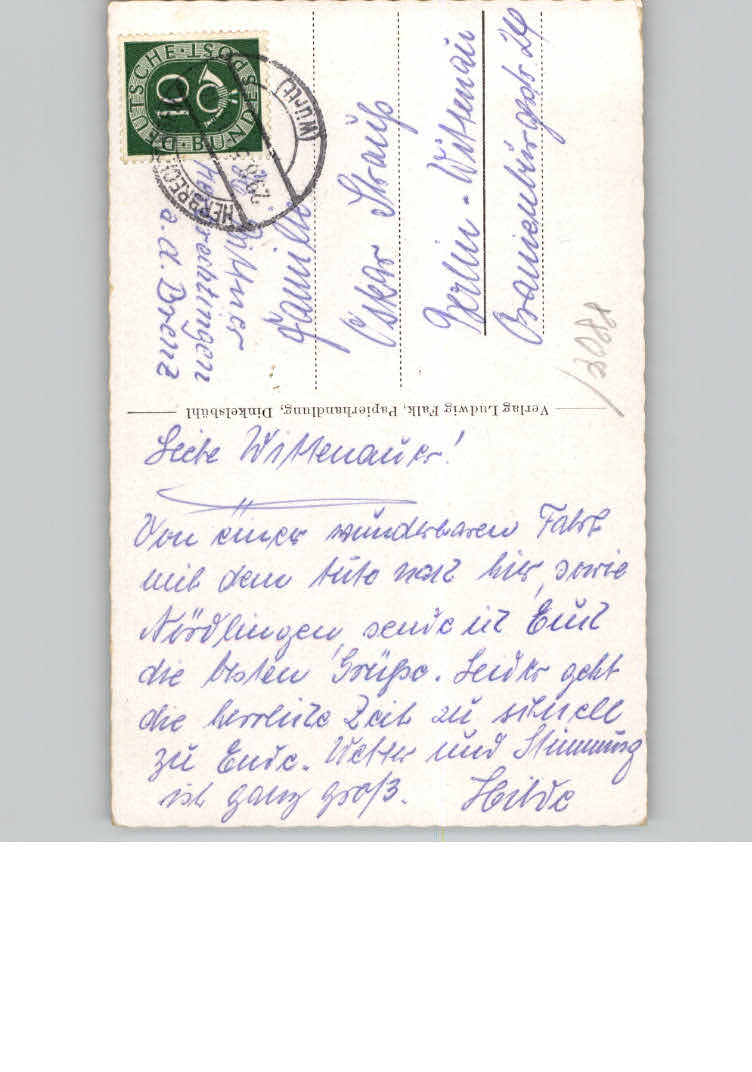 Liebe Wittenauer!
Von einer wunderbaren Fahrt
mit dem Auto nach hier, sowie
Nördlingen, sende ich Euch
die besten Grüße. Leider geht
die herrliche Zeit zu schnell
zu Ende. Wetter und Stimmung
ist ganz groß. Hilde
Verlag Ludwig Falk, Papierhandlung, Dinkelsbühl
Familie
Oskar Strauß
Berlin-Wittenau
Oranienburgstr. 24
Herbrechtingen
a. d. Brenz
DEUTSCHE BUNDESPOST
10
(WÜRTT)